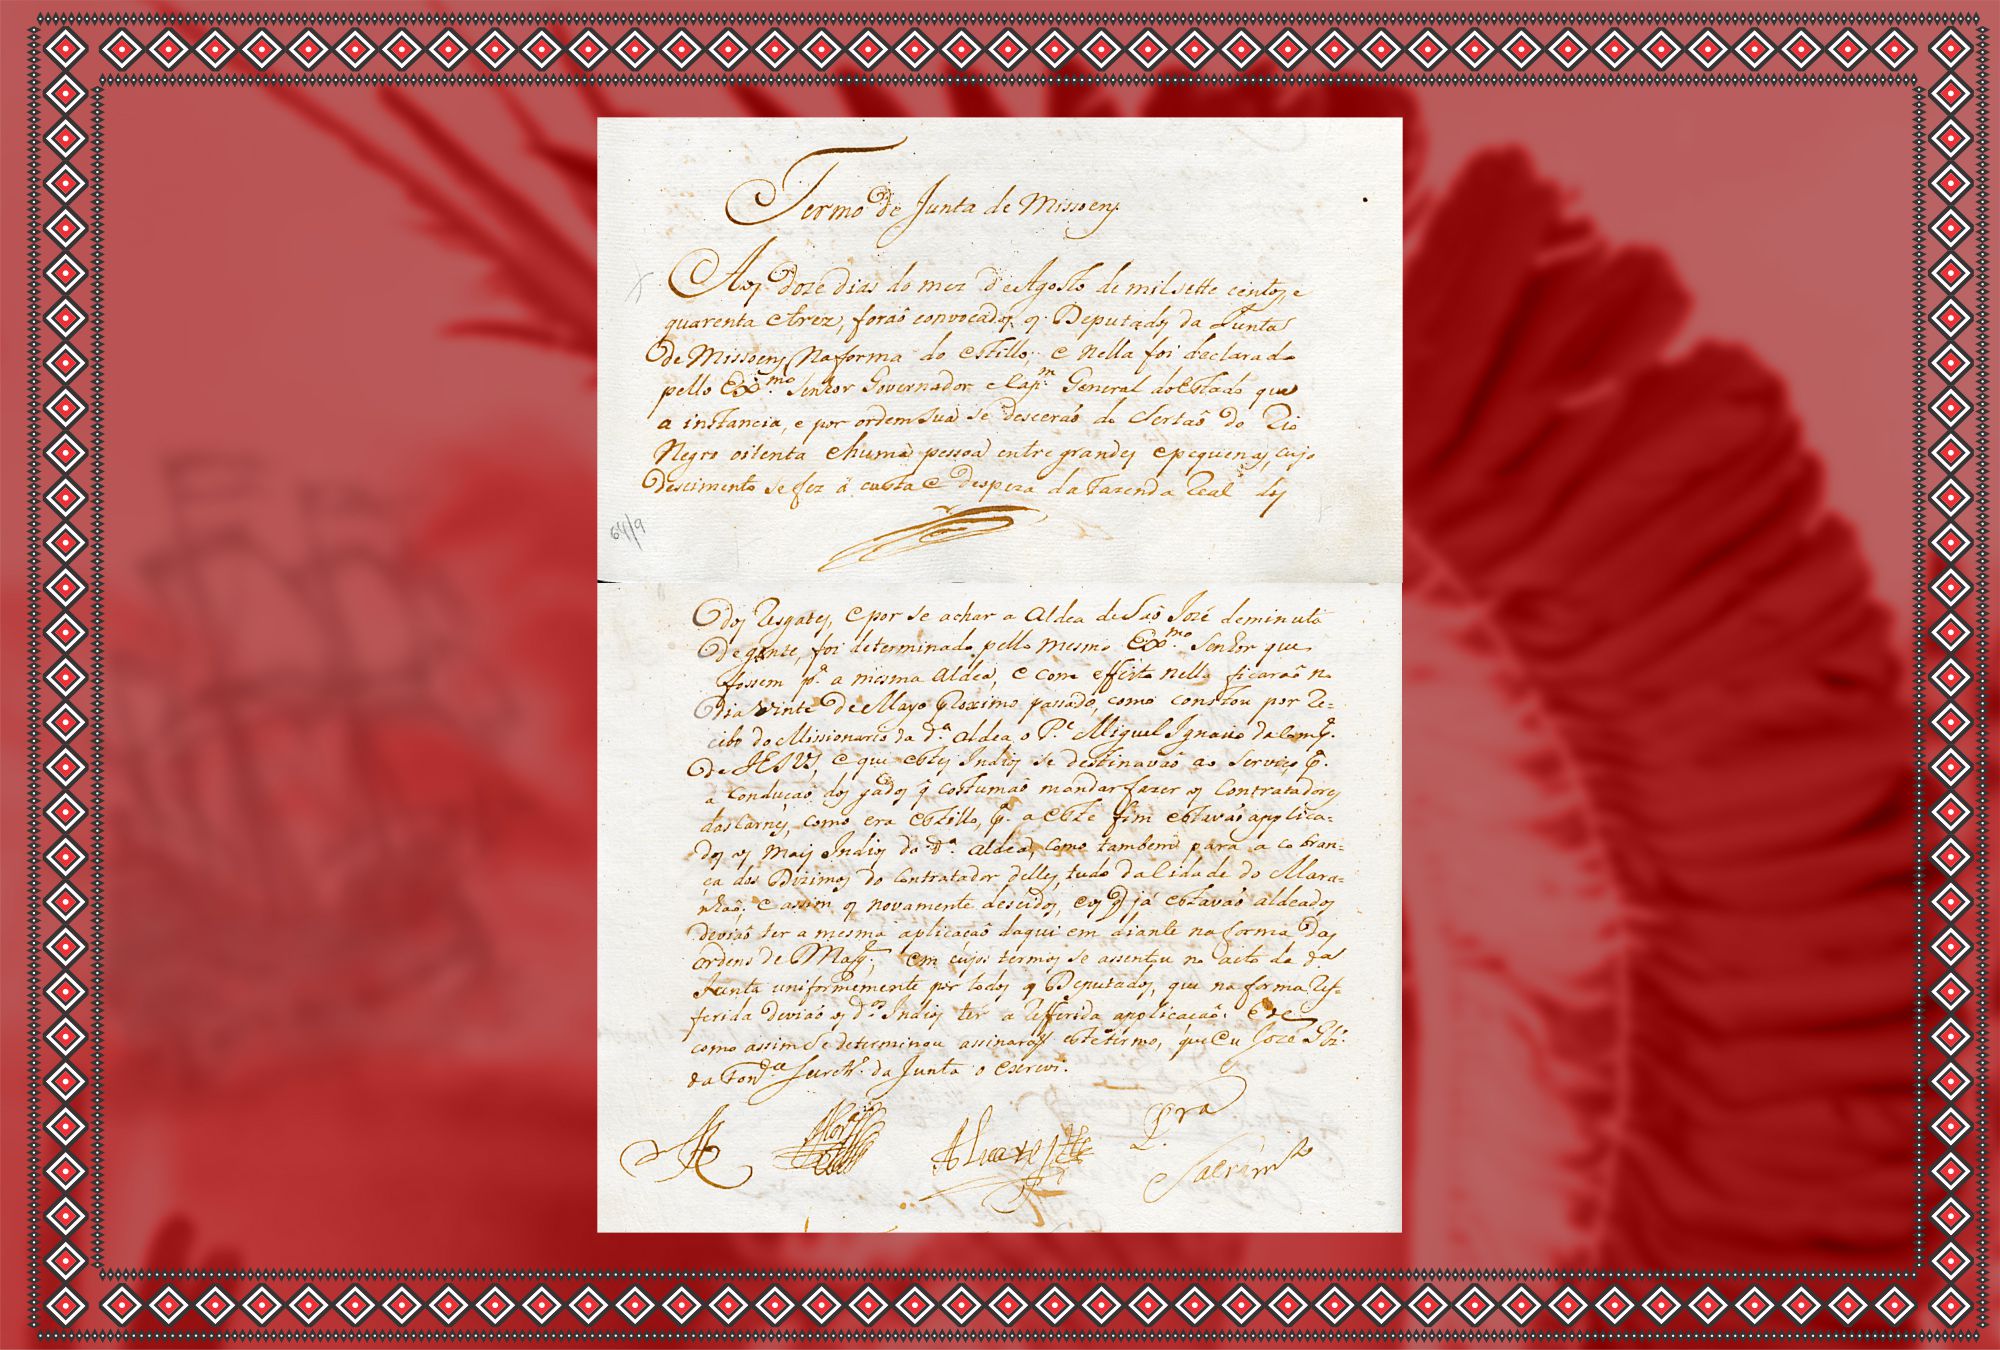 Termo de Junta de Missoens
Aos doze dias do mez de Agosto de mil sette centos e
quarenta e trez, foraõ convocados os Deputados da Junta
de Missoens na fforma do estillo; e nella foi declarado
pello Ex.mo Senhor Governador e Cap.m General do Estado que
a instancia, e por ordem sua se desceraõ do Sertaõ do Rio
Negro oitenta e huma pessoa entre grandes e pequenas, cujo
descimento se fez á custa e despeza da Fazenda Real dos
64/9
dos Resgates, e por se achar a Aldea de Saõ Jozé deminuta
de gente, foi determinado pello mesmo Ex.mo Senhor que
fossem p.ª a mesma Aldea, e com effeito nella ficaraõ no
dia vinte de Mayo proximo passado, como constou por Re=
cibo do Missionario da d.ª Aldea o P.e Miguel Ignacio da Comp.ª
de JESUS, e que estes Indios se destinavaõ ao serviço, p.ª
a conduçaõ dos gados q̃ costumaõ mandar fazer os Contratadores
das Carnes, como era estillo, p.ª este fim estavaõ applica=
dos os mais Indios da d.ª Aldea, como tambem para a cobran=
ça dos Dizimos do Contratador delles, tudo da Cidade do Mara=
nhaõ; e assim os novamente descidos, e os q̃ já estavaõ aldeados
deviaõ ter a mesma aplicaçaõ daqui em diante na forma das
ordens de Mag.e; em cujos termos se assentou no acto da d.ª
Junta uniformemente por todos os Deputados, que na forma ref=
ferida deviaõ os d.os Indios ter a refferida applicaçaõ: E de
como assim se determinou assinaraõ este termo, que eu Jozé Glz.
da Fon.ca Secretr.º da Junta o escrevi.
Alvares
Pr.ª
Sacram.to